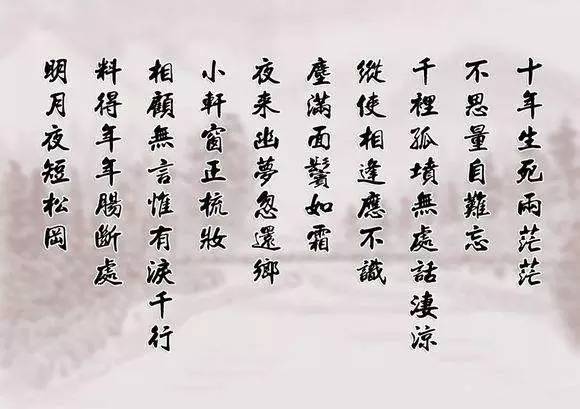 十年生死兩茫茫
不思量自難忘
千裡孤墳無處話淒涼
縱使相逢應不識
塵滿面鬢如霜
夜來幽夢忽還鄉
小軒窗正梳妝
相顧無言惟有淚千行
料得年年腸斷處
明月夜短松岡